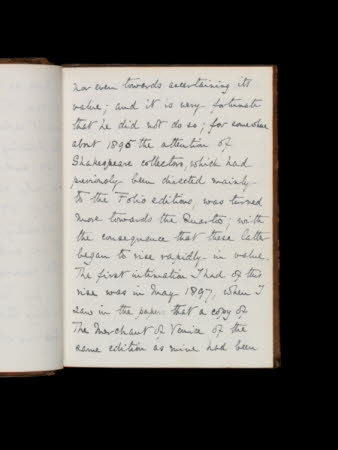 nor even towards ascertaining its
value; and it is very fortunate
that he did not do so; for somewhere
about 1895 the attention of
Shakespeare collectors, which had
previously been directed mainly
to the Folio editions, was turned
more towards the Quartos; with
the consequence that these latter
began to rise rapidly in value.
The first intimation I had of this
rise was in May 1897, when I
saw in the papers that a copy of
The Merchant of Venice of the
same edition as mine had been